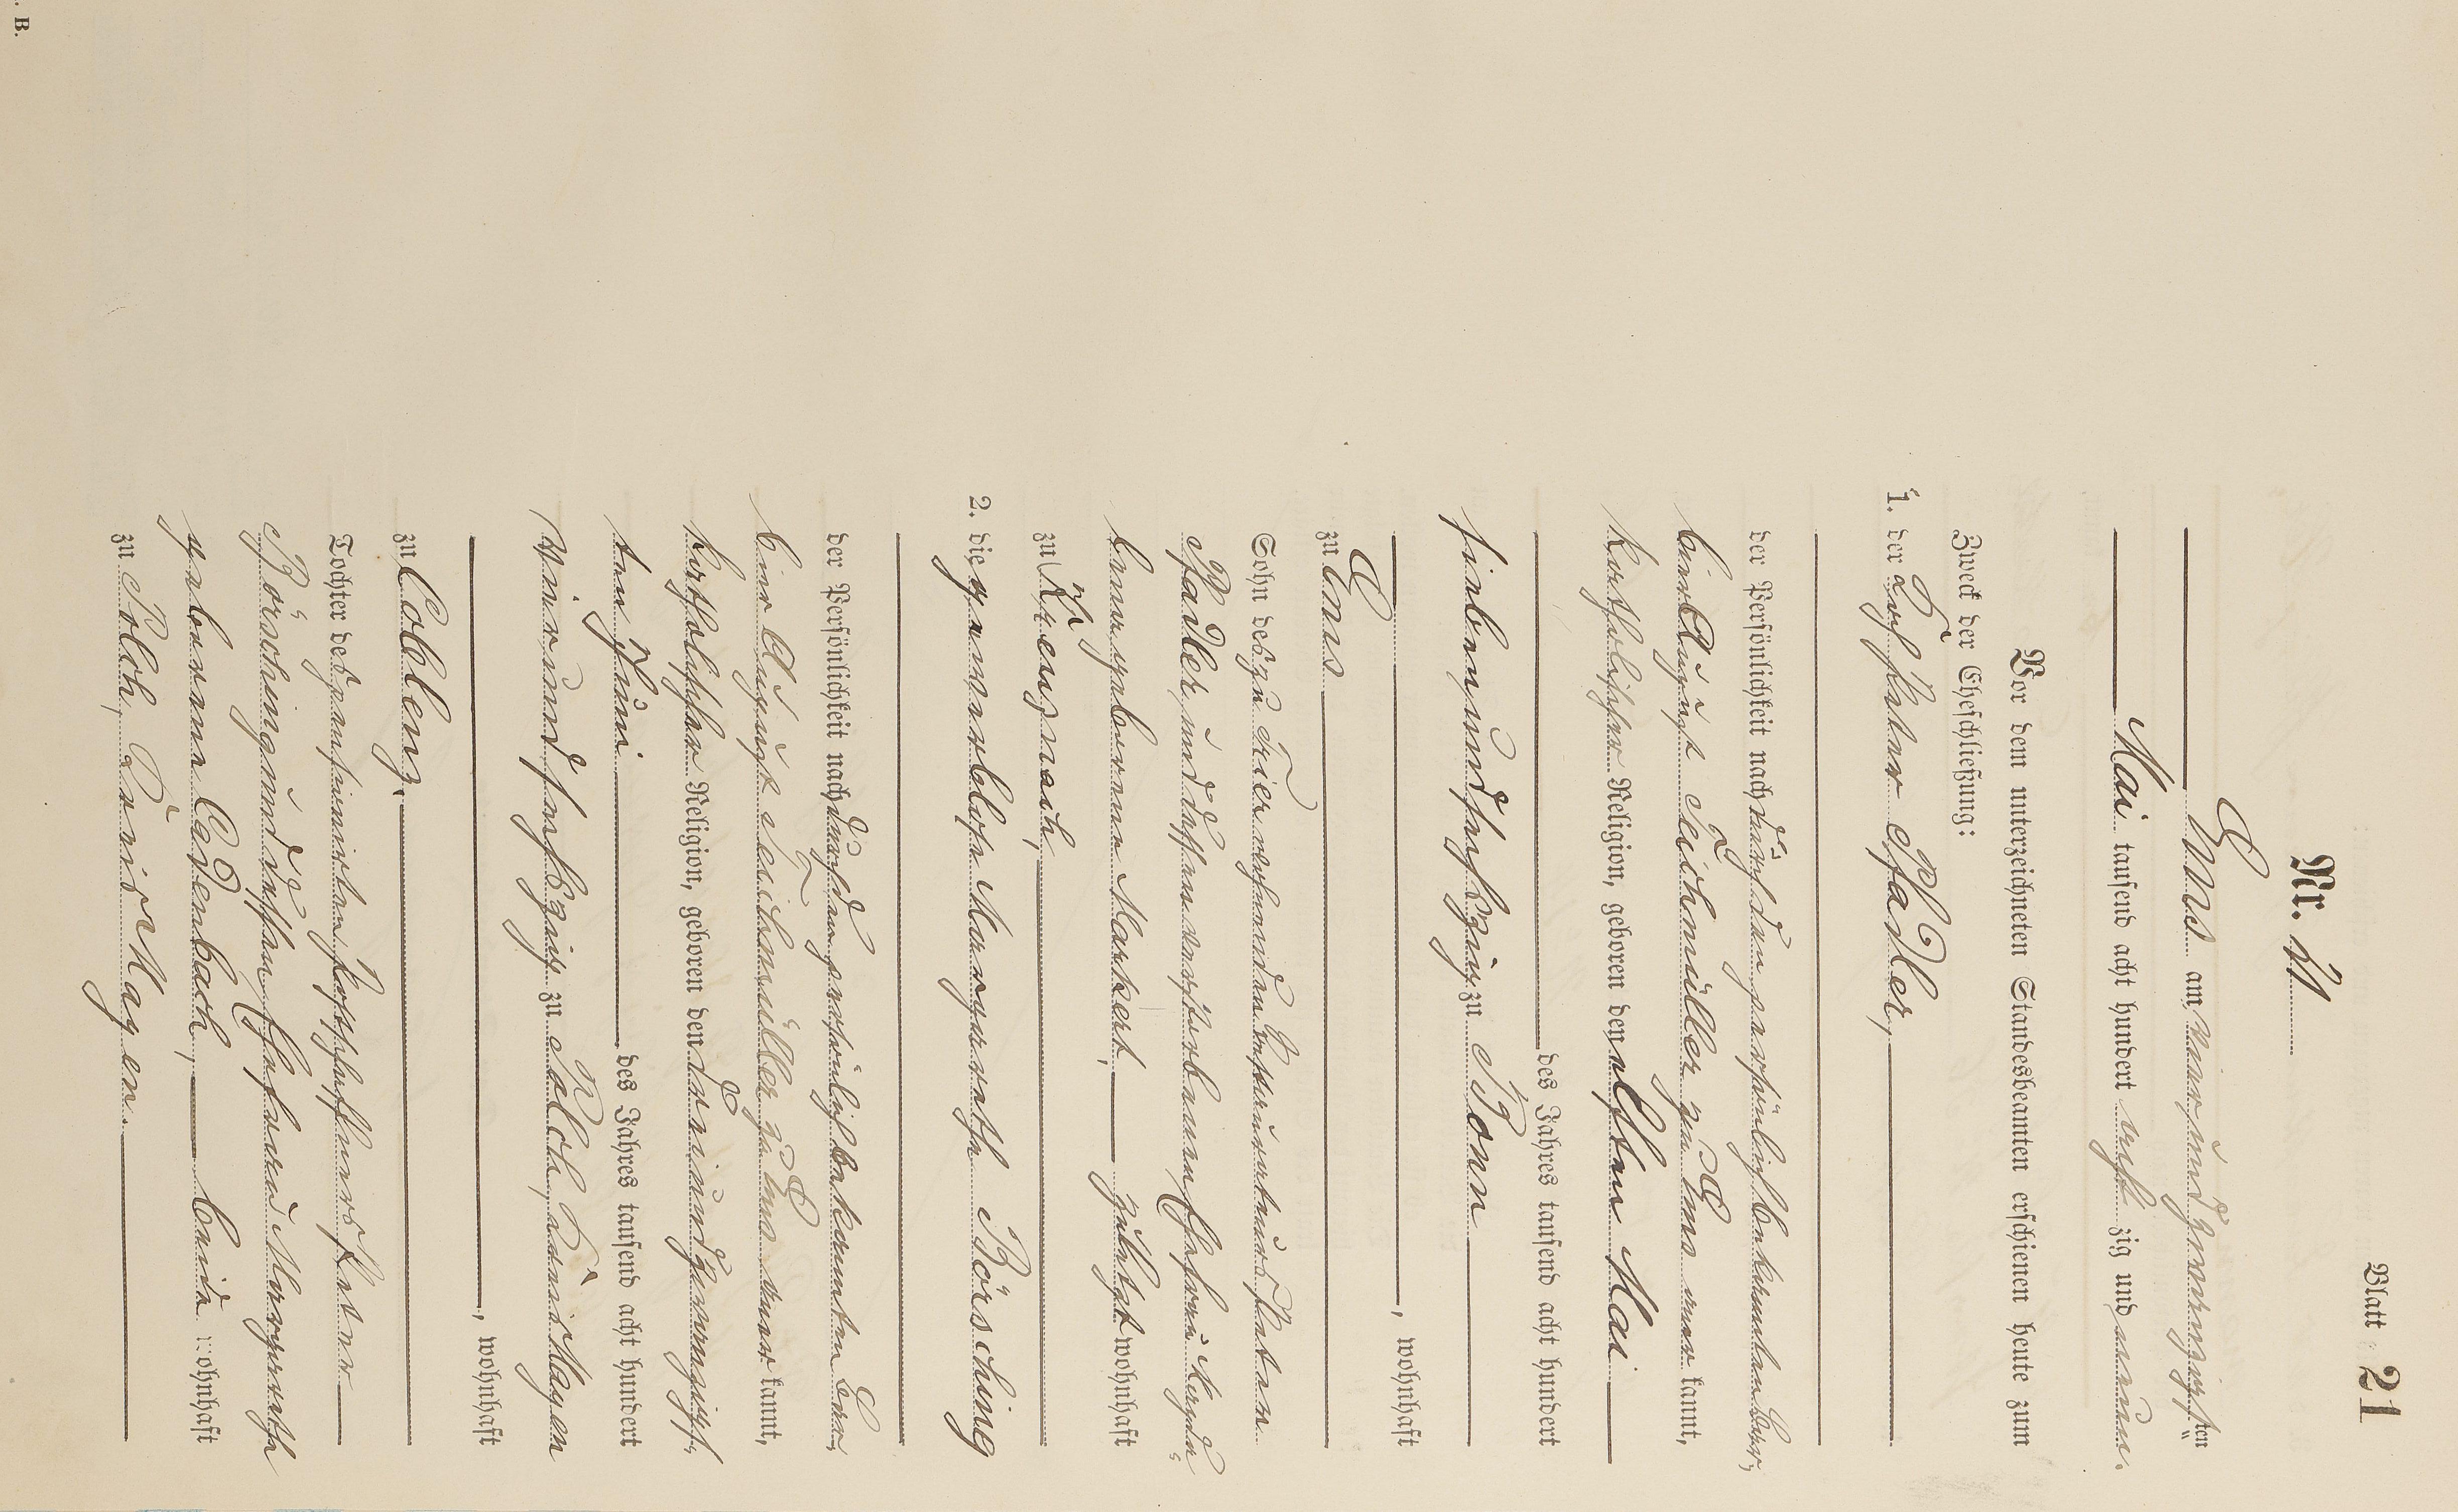 Blatt 21
Nr. 21
Ems am vierundzwanzigsten
Mai tausend acht hundert acht zig und neun.
Vor dem unterzeichneten Standesbeamten erschienen heute zum
Zweck der Eheschließung:
1. der Peter Pfadler,
der Persönlichkeit nach durch den persönlich bekannten
August Teichmüller zu Ems aner kannt,
katholischer Religion, geboren den elften Mai
des Jahres tausend acht hundert
siebenundsechzig zu Bonn
, wohnhaft
zu Ems
Sohn des zu Trier wohnenden Restaurateurs Peter
Pfadler und dessen verstorbenen Ehefrau Magda-
lena geborene Markert, zuletzt wohnhaft
zu Kreuznach,
2. die gewerblose Margarethe Börsching
der Persönlichkeit nach durch den persönlich bekannten
August Teichmüller zu Ems aner kannt,
katholischer Religion, geboren den dreiundzwanzig-
sten Juni des Jahres tausend acht hundert
vierundsechzig zu Polch, Kreis Mayen
, wohnhaft
zu Coblenz.
Tochter des pensionirten Postschaffners Peter
Börsching und dessen Ehefrau Margarethe
geborene Cadenbach, beide wohnhaft
zu Polch, Kreis Mayen.
. B.